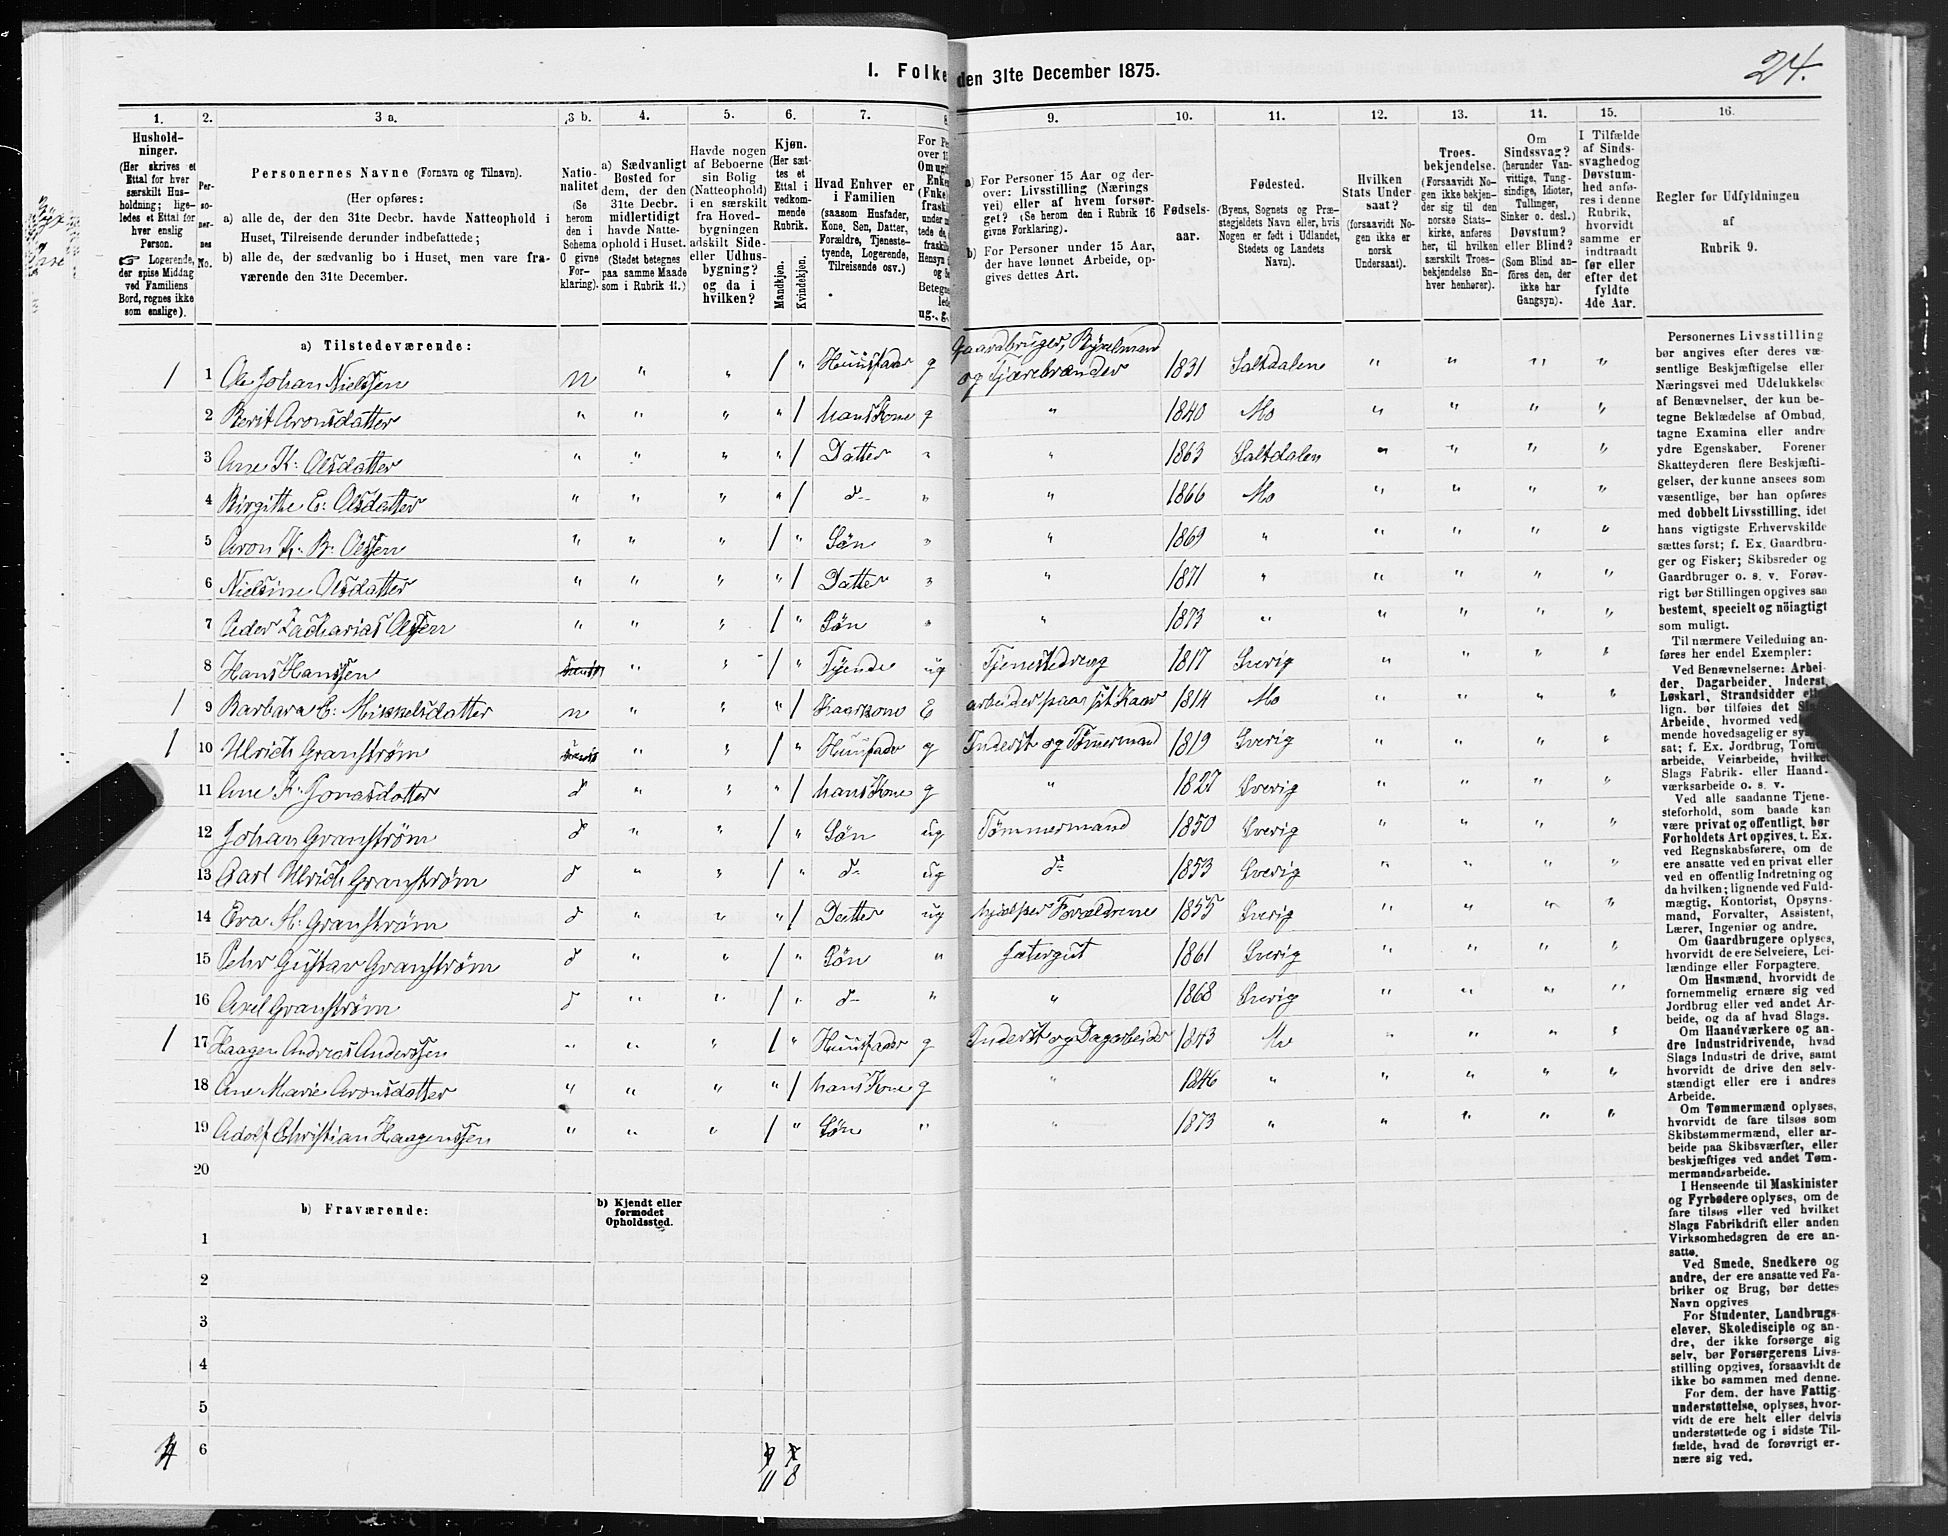 24.
I. Folke den 31te December 1875.
1. 2. 3 a. 3 b. 4. 5. 6. 7. 8. 9. 10. 11. 12. 13. 14. 15. 16.
Hushold-
ninger.
(Her skrives et
Ettal for hver
særskilt Hus-
holdning; lige-
ledes et Ettal for
hver enslig
Person.
☞ Logerende,
der spise Middag
ved Familiens
Bord, regnes ikke
som enslige).
Per-
so-
ner-
nes
No.
Personernes Navne (Fornavn og Tilnavn).
(Her opføres:
a) alle de, der den 31te Decbr. havde Natteophold i
Huset, Tilreisende derunder indbefattede;
b) alle de, der sædvanlig bo i Huset, men vare fra-
værende den 31te December.
Natio-
nalitet
(Se
herom
den i
Schema
O givne
For-
klaring).
a) Sædvanligt
Bosted for
dem, der den
31te Decbr.
midlertidigt
havde Natte-
ophold i Huset.
(Stedet betegnes
paa samme Maade
som i Rubrik 11.)
Havde nogen
af Beboerne
sin Bolig
(Natteophold)
i en særskilt
fra Hoved-
bygningen
adskilt Side-
eller Udhus-
bygning?
og da i
hvilken?
Kjøn.
(Her sæt-
tes et
Ettal i
vedkom-
mende
Rubrik.
Mandkjøn.
Kvindekjøn.
Hvad Enhver er
i Familien
(saasom Husfader,
Kone, Søn, Datter,
Forældre, Tjeneste-
tyende, Logerende,
Tilreisende osv.)
a) For Personer 15 Aar og der-
over: Livsstilling (Nærings
vei) eller af hvem forsør-
get? (Se herom den i Rubrik 16
givne Forklaring).
b) For Personer under 15 Aar,
der have lønnet Arbeide, op-
gives dettes Art.
Fødsels-
aar.
Fødested.
(Byens, Sognets og Præ-
stegjeldets Navn eller, hvis
Nogen er født i Udlandet,
Stedets og Landets
Navn).
Hvilken
Stats Under
saat?
(forsaavidt No-
gen ikke er
norsk
Undersaat).
Troes-
bekjendelse.
(Forsaavidt No-
gen ikke bekjen-
der sig til den
norske Stats-
kirke, anføres
her, til hvilken
særskilt Troes-
bekjendelse En-
hver henhører).
Om
Sindssvag?
(herunder Van-
vittige, Tung-
sindige, Idioter,
Tullinger,
Sinker o. desl.)
Døvstum?
eller Blind?
(Som Blind an-
føres den, der
ikke har
Gangsyn).
I Tilfælde
af Sinds-
svaghed og
Døvstum-
hed anfø-
res i denne
Rubrik,
hvorvidt
samme er
indtraadt
før eller
efter det
fyldte
4de Aar.
Regler for Udfyldningen
af
Rubrik 9.
a) Tilstedeværende:
1 1 Ole Johan Nielssen n " " 1 " Huusfader g Gaardbruger, Bygselmand og Tjærebrænder 1831 Saltdalen " " " "
2 Berit Aronsdatter " " " " 1 hans Kone g " 1840 Mo " " " "
3 Ane K: Olsdatter " " " " 1 Datter " " 1863 Saltdalen " " " "
4 Birgithe E: Olsdatter " " " " 1 d- " " 1866 Mo " " " "
5 Aron K. B: Olssen " " " 1 " Søn " " 1869 " " " " "
6 Nielsine Olsdatter " " " " 1 Datter " " 1871 " " " " "
7 Peder Zacharias Olssen " " " 1 " Søn " " 1873 " " " " "
8 Hans Hanssen " " 1 " Tyende ug Tjenestedreng 1817 Sverig " " " "
1 9 Barbara E: Mikkelsdatter n " " " 1 Kaarkone E 1814 Mo " " " "
1 10 Ulrich Granstrøm " " 1 " Huusfader g Inderst og Tømmermand 1819 Sverig " " " "
11 Ane K: Jonasdatter d " " " 1 hans Kone g " 1827 Sverig " " " "
12 Johan Granstrøm d " " 1 " Søn ug Tømmermand 1850 Sverig " " " "
13 Carl Ulrich Granstrøm d " " 1 " d- ug d- 1853 Sverig " " " "
14 Eva M: Granstrøm d " " " 1 Datter ug hjælper Forældrene 1855 Sverig " " " "
15 Pehr Gustav Granstrøm d " " 1 " Søn " Jætergut 1861 Sverig " " " "
16 Axel Granstrøm d " " 1 " d- " " 1868 Sverig " " " "
1 17 Haagen Andreas Anderssen " " " 1 " Huusfader g Inderst og Dagarbeider 1843 Mo " " " "
18 Ane Marie Aronsdatter " " " " 1 hans Kone g " 1846 " " " " "
19 Adolf Christian Haagenssen " " " 1 " Søn " " 1873 " " " " "
20
b) Fraværende:
b) Kjendt eller
formodet
Opholdssted.
1
2
3
4
5
4 6
11 8
Personernes Livsstilling
bør angives efter deres væ-
sentlige Beskjæftigelse eller
Næringsvei med Udelukkelse
af Benævnelser, der kun be-
tegne Beklædelse af Ombud,
tagne Examina eller andre
ydre Egenskaber. Forener
Skatteyderen flere Beskjæfti-
gelser, der kunne ansees som
væsentlige, bør han opføres
med dobbelt Livsstilling, idet
hans vigtigste Erhvervskilde
sættes først; f. Ex. Gaardbru-
ger og Fisker; Skibsreder og
Gaardbruger o. s. v. Forøv-
rigt bør Stillingen opgives saa
bestemt, specielt og nöiagtigt
som muligt.
Til nærmere Veiledning an-
føres her endel Exempler:
Ved Benævnelserne: Arbei-
der, Dagarbeider, Inderst,
Løskarl, Strandsidder
lign. bør tilføies det
Arbeide, hvormed
mende hovedsagelig er
sat; f. Ex. Jordbrug,
arbeide, Veiarbeide, hvilket
Slags Fabrik- eller Haand-
værksarbeide o. s. v.
Ved alle saadanne Tjene-
steforhold, som baade kan
være privat og offentligt, bør
Forholdets Art opgives, t. Ex.
ved Regnskabsførere, om de
ere ansatte ved en privat eller
ved en offentlig Indretning og
da hvilken; lignende ved Fuld-
mægtig, Kontorist, Opsyns-
mand, Forvalter, Assistent,
Lærer, Ingeniør og andre.
Om Gaardbrugere oplyses,
hvorvidt de ere Selveiere, Lei-
lændinge eller Forpagtere.
Om Husmænd, hvorvidt de
fornemmelig ernære sig ved
Jordbrug eller ved andet Ar-
beide, og da af hvad Slags.
Om Haandværkere og an-
dre Industridrivende, hvad
Slags Industri de drive, samt
hvorvidt de drive den selv-
stændigt eller ere i andres
Arbeide.
Om Tømmermænd oplyses,
hvorvidt de fare tilsøs som
Skibstømmermænd, eller ar-
beide paa Skibsværfter, eller
beskjæftiges ved andet Tøm-
mermandsarbeide.
I Henseende til Maskinister
og Fyrbødere oplyses, om de
fare tilsøs eller ved hvilket
Slags Fabrikdrift eller anden
Virksomhedsgren de ere an-
satte.
Ved Smede, Snedkere og
andre, der ere ansatte ved Fa-
briker og Brug, bør dettes
Navn opgives
For Studenter, Landbrugs-
elever, Skoledisciple og an-
dre, der ikke forsørge sig
selv, bør Forsørgerens Livs-
stilling opgives, forsaavidt de
ikke bo sammen med denne.
For dem, der have Fattig-
understøttelse, oplyses, hvor-
vidt de ere helt eller delvis
understøttede og i sidste Til-
fælde, hvad de forøvrigt er-
nære sig ved.